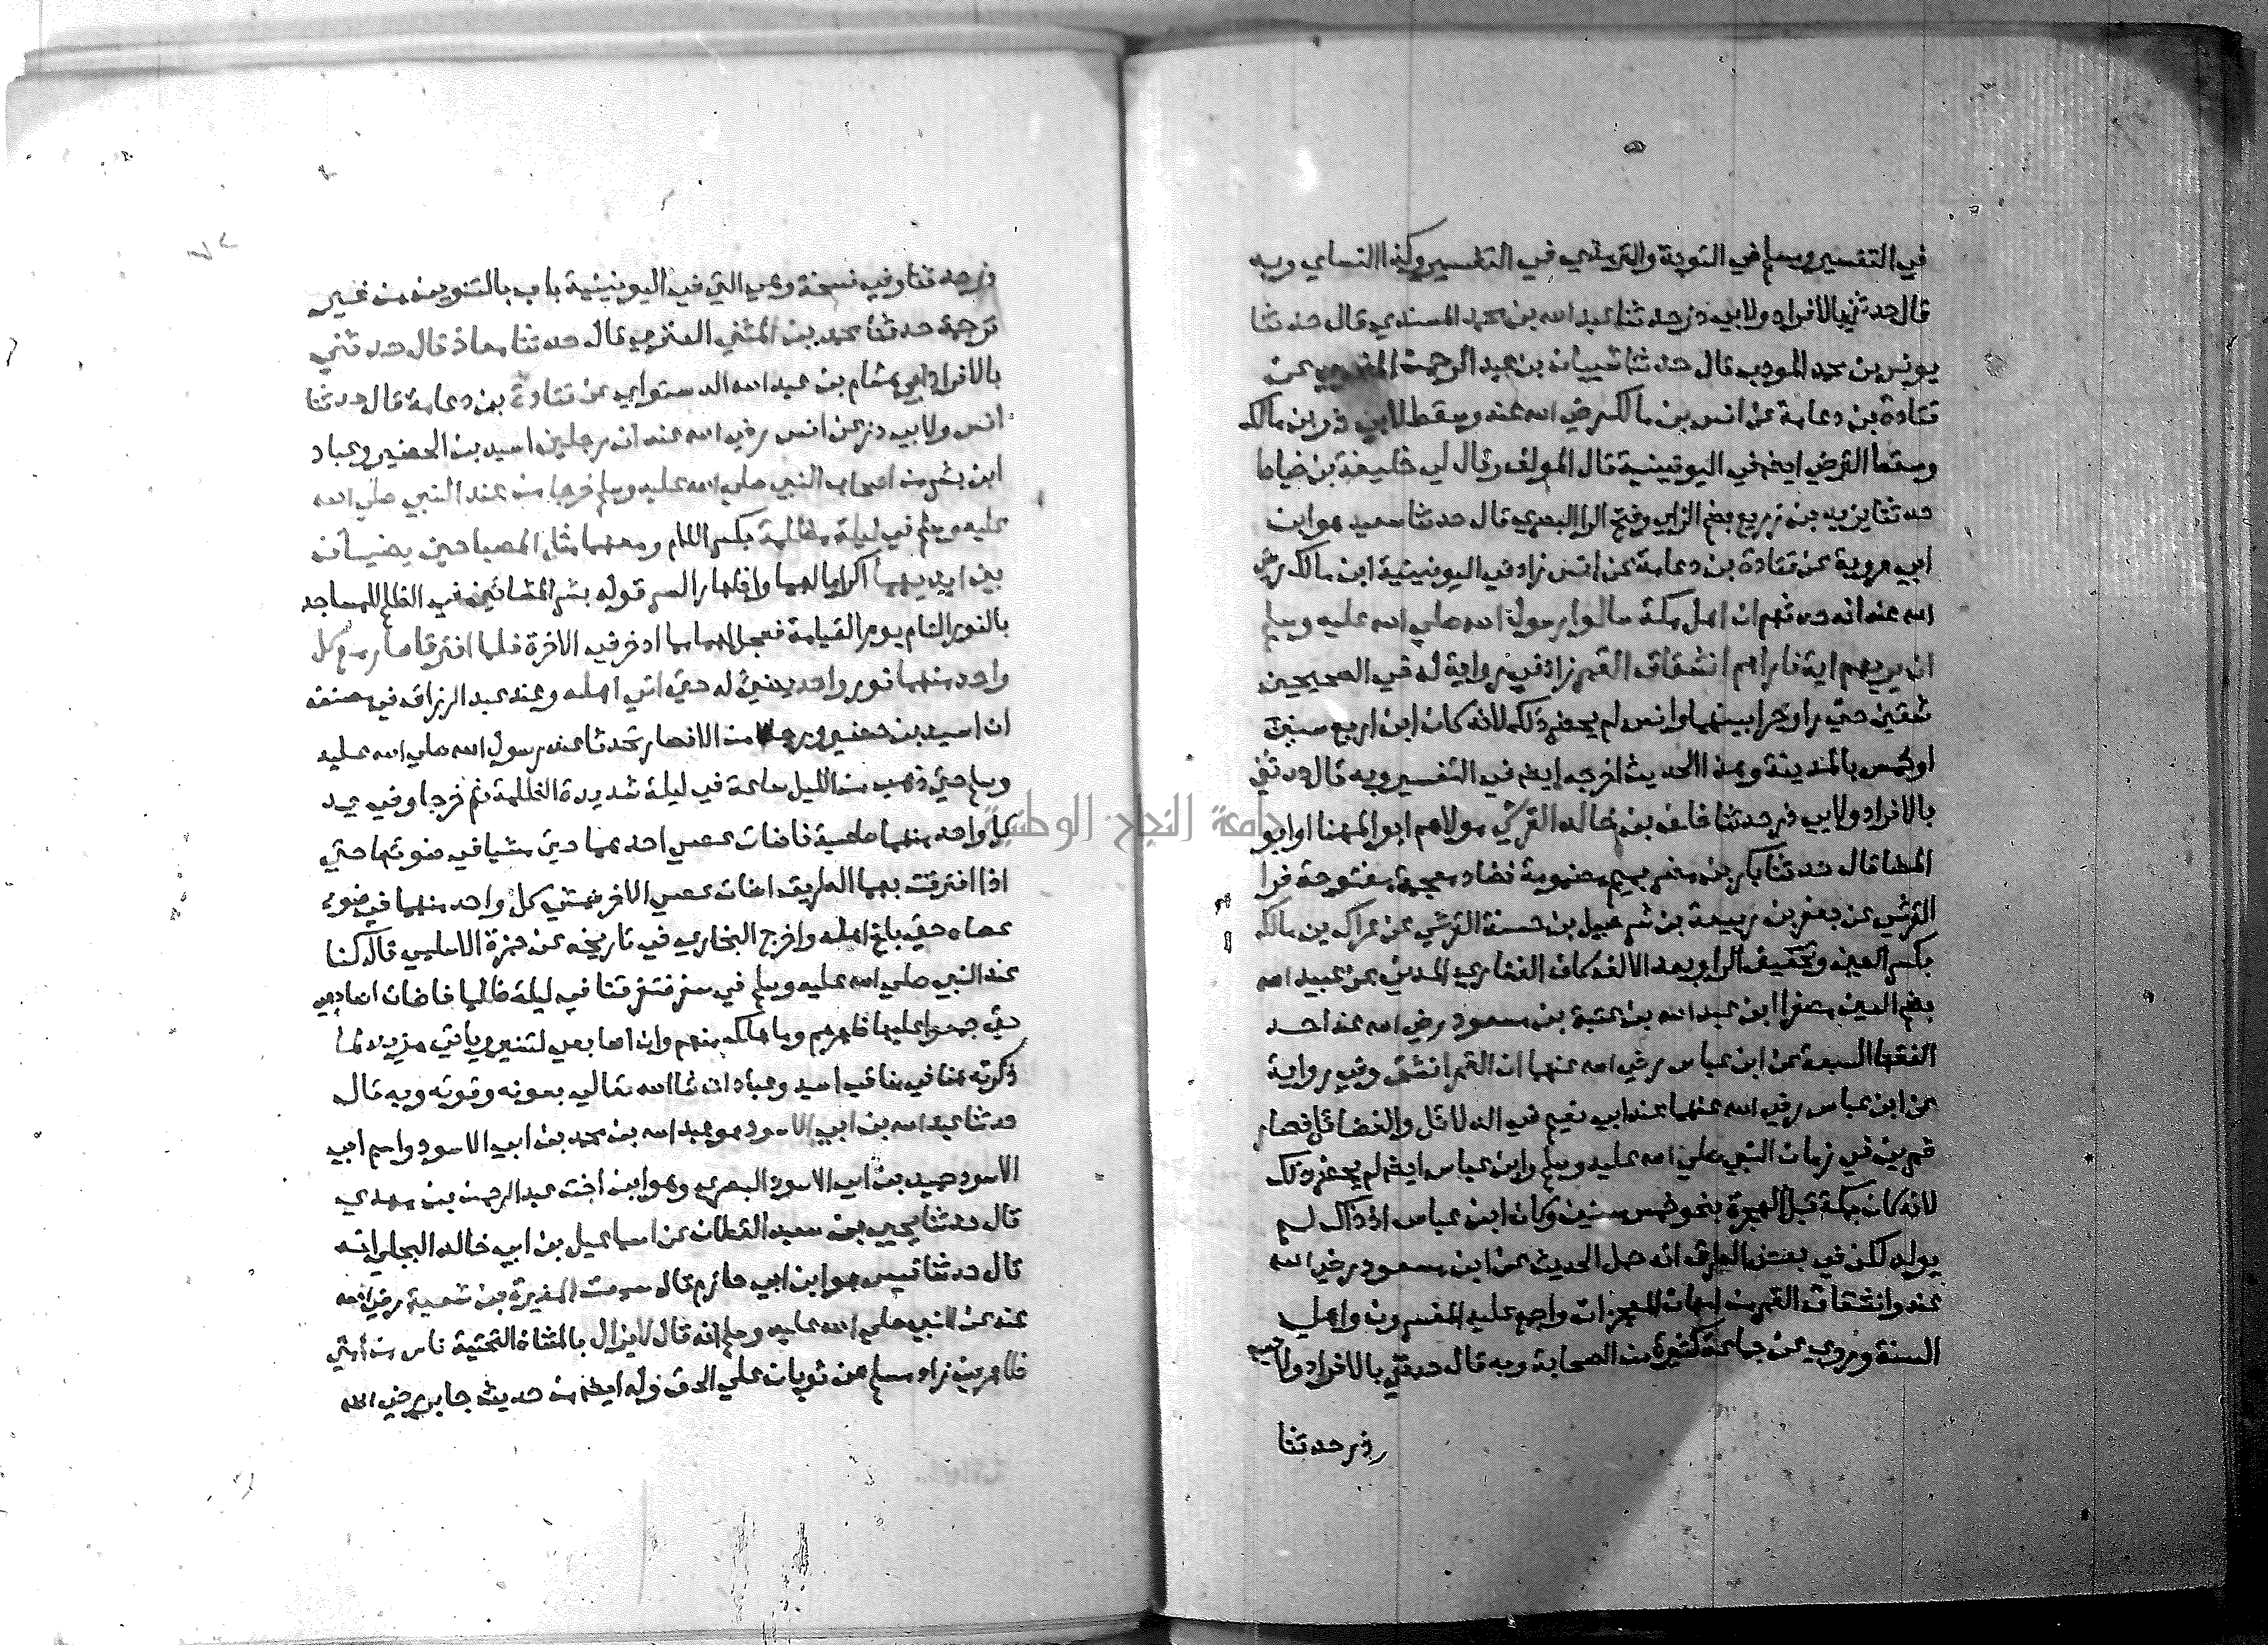 في التفسير ومسلم في التوبة والترمذي في التفسير وكذا النساي وبه
قال حدثني بالافراد ولابي ذر حدثنا عبد الله بن محمد المسندي قال حدثنا
يونس بن محمد المودب قال حدثنا شيبان بن عبد الرحمن النحوي عن
قتادة بن دعامة عن انس بن مالك رضي الله عنه وسقط لابي ذر ابن مالك
وسقط الترضي ايضا في اليونينية قال المولف وقال لي خليفة بن خياط
حدثنا يزيد بن زريع بضم الزاي وفتح الرا البصري قال حدثنا سعيد هو ابن
ابي عروبة عن قتادة بن دعامة عن انس زاد في اليونينية ابن مالك رضي
الله عنه انه حدثهم ان اهل مكة سالوا رسول الله صلي الله عليه وسلم
ان يريهم اية فاراهم انشقاق القمر زاد في رواية له في الصحيحين
شقتين حتي راوا حرا بينهما وانس لم يحضر ذلك لانه كان ابن اربع سنين
او خمس بالمدينة وهذا الحديث اخرجه ايضا في التفسير وبه قال حدثني
بالافراد ولابي ذر حدثنا خلف بن خالد القرشي مولاهم ابو المهنا او ابو
المضا قال حدثنا بكر بن مضر بميم مضمومة فضاد معجمة مفتوحة فرا
القرشي عن جعفر بن ربيعة بن شرحبيل بن حسنة القرشي عن عراك بن مالك
بكسر العين وتخفيف الرا وبعد الالف كاف الغفاري المدني عن عبيد الله
بضم العين مصغرا ابن عبد الله بن عتبة بن مسعود رضي الله عنه احد
الفقها السبعة عن ابن عباس رضي الله عنهما ان القمر انشق وفي رواية
عن ابن عباس رضي الله عنهما عند ابي نعيم في الدلائل والفضائل فصار
قمرين في زمان النبي صلي الله عليه وسلم وابن عباس ايضا لم يحضر ذلك
لانه كان بمكة قبل الهجرة بنحو خمس سنين وكان ابن عباس اذ ذاك لم
يولد لكن في بعض الطرق انه حمل الحديث عن ابن مسعود رضي الله
عنه وانشقاق القمر من امهات المعجزات واجمع عليه المفسرون واهل
السنة وروي عن جماعة كثيرة من الصحابة وبه قال حدثني بالافراد ولابي
ذر حدثنا
ذر حدثنا وفي نسخة وهي التي في اليونينية باب بالتنوين من غير
ترجمة حدثنا محمد بن المثني العنزي قال حدثنا معاذ قال حدثني
بالافراد ابي هشام بن عبد الله الدستواي عن قتادة بن دعامة قال حدثنا
انس ولابي ذر عن انس رضي الله عنه ان رجلين اسيد بن الحضير وعباد
ابن بشر من اصحاب النبي صلي الله عليه وسلم خرجا من عند النبي صلي الله
عليه وسلم في ليلة مظلمة بكسر اللام ومعهما مثل المصباحين يضيان
بين ايديهما اكراما لهما واظهار السر قوله بشر المشائين في الظلم للمساجد
بالنور التام يوم القيامة فعجل لهما مما ادخر في الاخرة فلما افترقا صار مع كل
واحد منهما نور واحد يضئ له حتي اتي اهله وعند عبد الرزاق في مصنفه
ان اسيد بن حضير ورجلا من الانصار تحدثا عند رسول الله صلي الله عليه
وسلم حتي ذهب من الليل ساعة في ليلة شديدة الظلمة ثم خرجا وفي يد
كل واحد منهما عصية فاضات عصي احدهما حتي مشيا في ضوئها حتي
اذا افترقت بهما الطريق اضات عصي الاخر فمشي كل واحد منهما في ضوء
عصاه حتي بلغ اهله واخرج البخاري في تاريخه عن حمزة الاسلمي قال كنا
عند النبي صلي الله عليه وسلم في سفر فتفرقنا في ليلة ظلما فاضات اصابعي
حتي جمعوا عليها ظهرهم وما هلك منهم وان اصابعي لتنير وياتي مزيد لما
ذكرته هنا في مناقب اسيد وعباد ان شا الله تعالي بعونه وقوته وبه قال
حدثنا عبد الله بن ابي الاسود هو عبد الله بن محمد بن ابي الاسود واسم ابي
الاسود حميد بن ابي الاسود البصري وهو ابن اخت عبد الرحمن بن مهدي
قال حدثنا يحيي بن سعيد القطان عن اسماعيل بن ابي خالد البجلي انه
قال حدثنا قيس هو ابن ابي حازم قال سمعت المغيرة بن شعبة رضي الله
عنه عن النبي صلي الله عليه وسلم انه قال لا يزال بالمثناة التحتية ناس من امتي
ظاهرين زاد مسلم عن ثوبان علي الحق وله ايضا من حديث جابر رضي الله
جامعة النجاح الوطنية